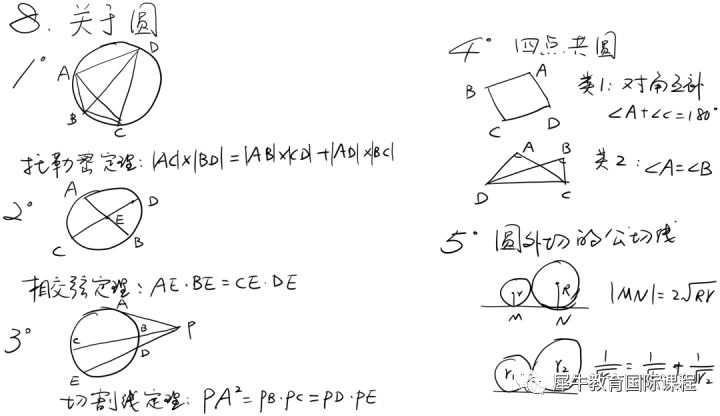 8. 关于圆
1°
A
D
B
C
托勒密定理: |AC|×|BD|=|AB|×|CD|+|AD|×|BC|
2°
A
D
E
C
B
相交弦定理: AE·BE=CE·DE
3°
A
B
P
C
D
E
切割线定理: PA²=PB·PC=PD·PE
4° 四点共圆
A
B
C
D
类1: 对角互补
∠A+∠C=180°
A
B
D
C
类2: ∠A=∠B
5° 圆外切的公切线
r
R
M
N
|MN|=2√Rr
r₁
r₂
= 1/√r₁ + 1/√r₂
犀牛教育国际课程